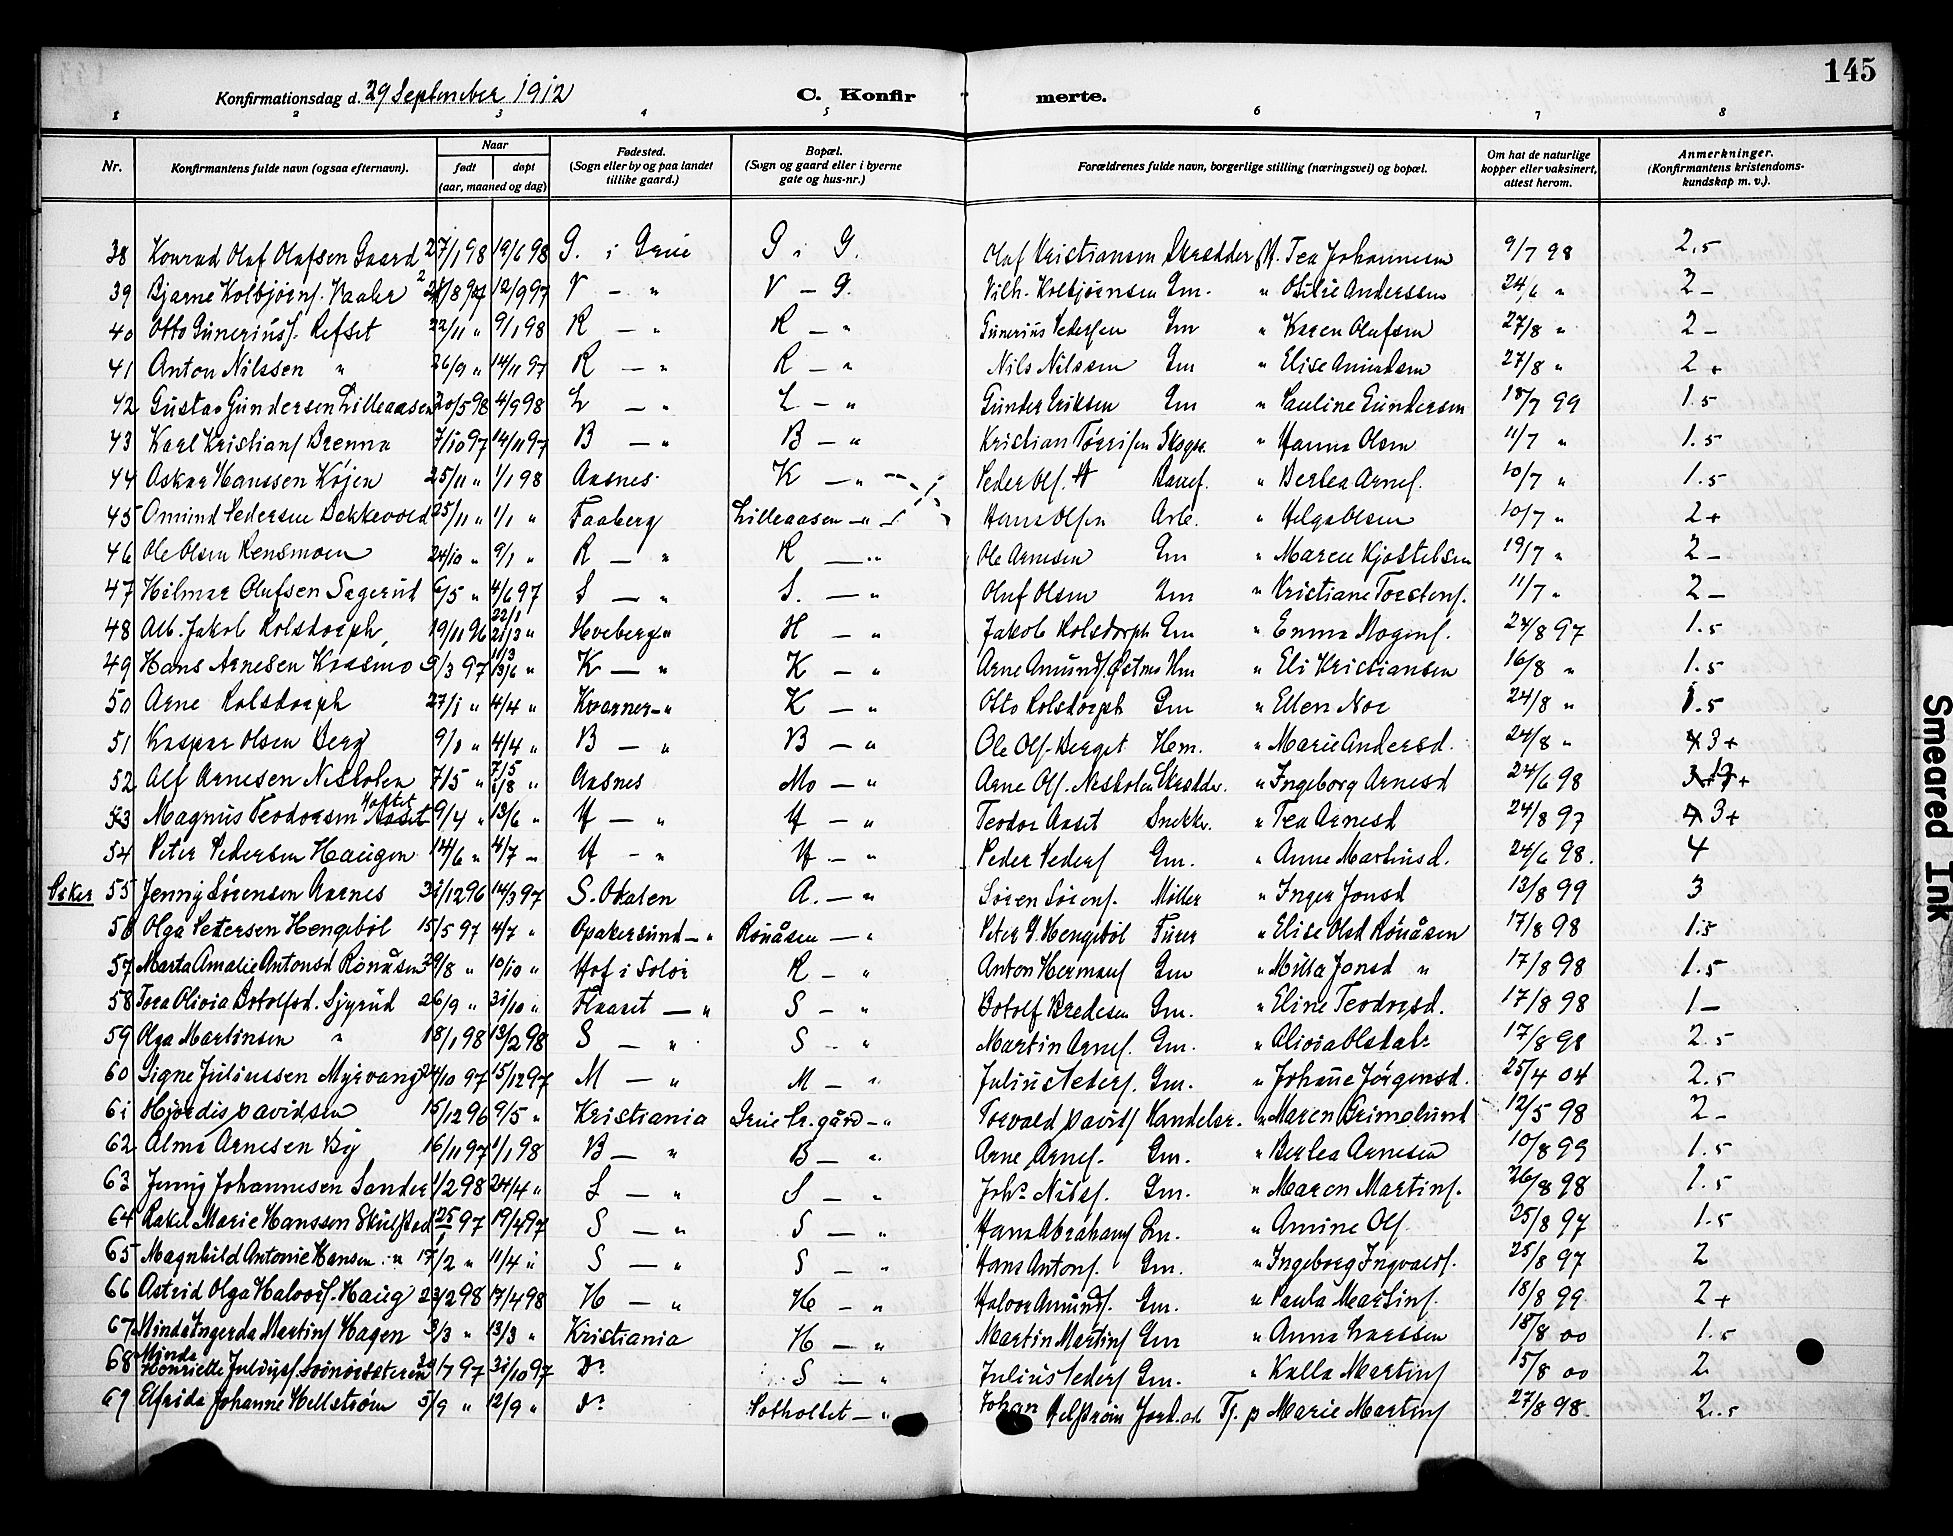 145
Konfirmationsdag d. 29 September 1912 C. Konfir merte.
1 2 3 4 5 6 7 8
Nr. Konfirmantens fulde navn (ogsaa efternavn). Naar født døpt (aar, maaned og dag) Fødested. (Sogn eller by og paa landet tillike gaard.) Bopæl. (Sogn og gaard eller i byerne gate og hus-nr.) Forældrenes fulde navn, borgerlige stilling (næringsvei) og bopæl. Om hat de naturlige kopper eller vaksinert, attest herom. Anmerkninger. (Konfirmantens kristendomskundskap m. v.).
38 Konrad Olaf Olafsen Gaard 27/1 98 19/6 98 G. i Grue G i G. Olaf Kristiansen Skrædder Tea Johannesen 9/7 98 2.5
39 Bjarne Kolbjørns. Naaber 12/9 97 N — " N — G. Vilh. Kolbjørnsen Gm. " Otilie Anderssen 24/6 " 2 –
40 Otto Guneriuss. Refset 22/11 " 9/1 98 R — " R — " Gunerius Pedersen Gm " Karen Olufsen 27/8 " 2 –
41 Anton Nilssen " 26/9 " 14/11 97 R — " R — " Nils Nilssen Gm " Elise Amundsen 27/8 " 2 +
42 Gustav Gundersen Lilleaasen 20/5 98 4/9 98 L — " L — " Gunder Eriksen Gm " Pauline Gundersen 18/7 99 1.5
43 Karl Kristians Brenna 7/10 97 14/11 97 B — " B — " Kristian Tørrisen Skogsr. " Hanna Olsen 11/7 " 1.5
44 Askar Hanssen Køjen 25/11 " 1/1 98 Aasnes. K — " Peder Ols. " Bertea Arnes. 10/7 " 1.5
45 Omund Pedersen Bekkevold 25/11 " 1/1 " Faaberg Lilleaasen — " Hans Olsen Arb. " Helga Olsen 10/7 " 2 +
46 Ole Olsen Rensmoen 24/10 " 9/1 " R — " R — " Ole Arnesen Gm " Maren Kjostelsen 19/7 " 2 –
47 Hilmar Olufsen Sagerud 6/5 " 4/6 97 S — " S. — " Oluf Olsen Gm " Kristiane Torstens. 11/7 " 2 –
48 Alb. Jakob Rolsdorph 19/11 96 22/1 21/3 " Hveberg " H — " Jakob Rolsdorph Gm " Emma Mogens. 24/8 97 1.5
49 Hans Arnesen Krasmo 9/3 97 11/3 13/6 " K — " K — " Arne Amunds. Østmo Hm " Eli Kristiansen 16/8 " 1.5
50 Arne Rolsdorph 27/1 " 4/4 " Kvarner — " K — " Otto Rolsdorph Gm " Ellen Nor 24/8 " 1.5
51 Kaspar Olsen Berg 9/1 " 4/4 " B — " B — " Ole Ols. Berget Hem. " Marie Andersd. 24/8 " 3 +
52 Alf Arnesen Nesholen 7/5 " 7/5 1/8 " Aasnes Mo — " Arne Ols. Nesholen Skrædder. " Ingeborg Arnesd 24/6 98
53 Magnus Teodorsen 9/4 " 13/6 " H — " H — " Teodor Aaset Snekker. " Tea Arnesd 24/8 97 3 +
54 Peter Pedersen Haugen 14/6 " 4/7 " H — " H — " Peder Peders Gm. " Anne Martinsd. 24/6 98. 4
55 Jenny Sørensen Aarnes 31/12 96 14/3 97 S. Odalen A. — " Søren Sørens. Møller " Inger Jonsd 13/8 99 3
56 Olga Petersen Hengebøl 15/5 97 4/7 " Opakersund — " Rönåsen — " Peter G. Hengebøl Furer " Elise Olsd Rönåsen 17/8 98 1.5
57 Marta Amalie Antonsd Rönåsen 29/8 " 10/10 " Hof i Solör R — " Anton Hermans Gm " Milla Jonsd " 17/8 98 1.5
58 Tora Olivia Botolfsd. Sjyrud 26/9 " 31/10 " Flaaret — " S — " Botolf Bredesen Gm. " Eline Teodorsd. 17/8 98 1 –
59 Olga Martinsen " 18/1 98 13/2 98 S — " S — " Martin Arnes. Gm. " Olivia 17/8 98 2.5
60 Signe Juliussen Myrvang 24/10 97 15/12 97 M — " M — " Julius Peders. Gm. " Johane Jörgensd. 25/4 04 2.5
61 Hjørdis Davidsen 15/12 96 9/5 " Kristiania Grue Pr.gård — " Torvald Davids Handelsr. " Maren Grimslund 12/5 98 2 –
62 Alma Arnesen By 16/11 97 1/1 98 B — " B — " Arne Arnes. Gm. " Bertea Arnesen 10/8 99 1.5
63 Jenny Johannesen Sander 1/2 98 24/4 " S — " S — " Johs Nils. Gm. " Maren Martins. 26/8 98 1.5
64 Rakel Marie Hanssen Skulstad 97 19/4 97 S — " S — " Hans Abrahams Gm. " Amine Ols. 25/8 97 1.5
65 Magnhild Antonie Hansen " 17/2 " 11/4 " S — " S — " Hans Antons. Gm. " Ingeborg Ingvalds. 25/8 97 2
66 Astrid Olga Halvors. Haug 23/2 98 17/4 98 H — " H — " Halvor Amunds. Gm. " Paula Martins. 18/8 99 2 +
67 Minda Ingerda Martins Hagen 3/3 " 13/3 " Kristiania H — " Martin Martins Gm " Anna Larssen 18/8 00 1.5
68 Minda Henriette Juliuss. 7 97 31/10 97 Do S — " Julius Peders Gm. " Kalla Martins 15/8 00 2
69 Elfrida Johanne Hellstrøm 5/9 " 12/9 " Do Potholtet — " Johan Helstrøm Marie Martins 27/8 98. 2.5
Smeared Ink